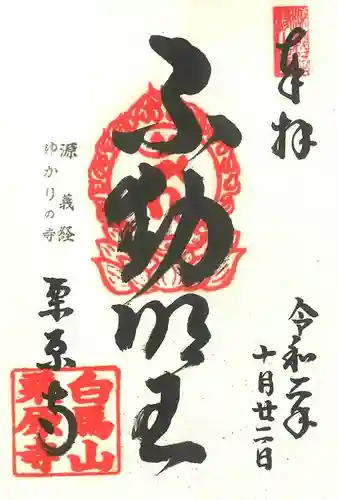 奉拝
令和二年
十月廿二日
不動明王
源義経
ゆかりの寺
栗原寺
白馬山
栗原寺